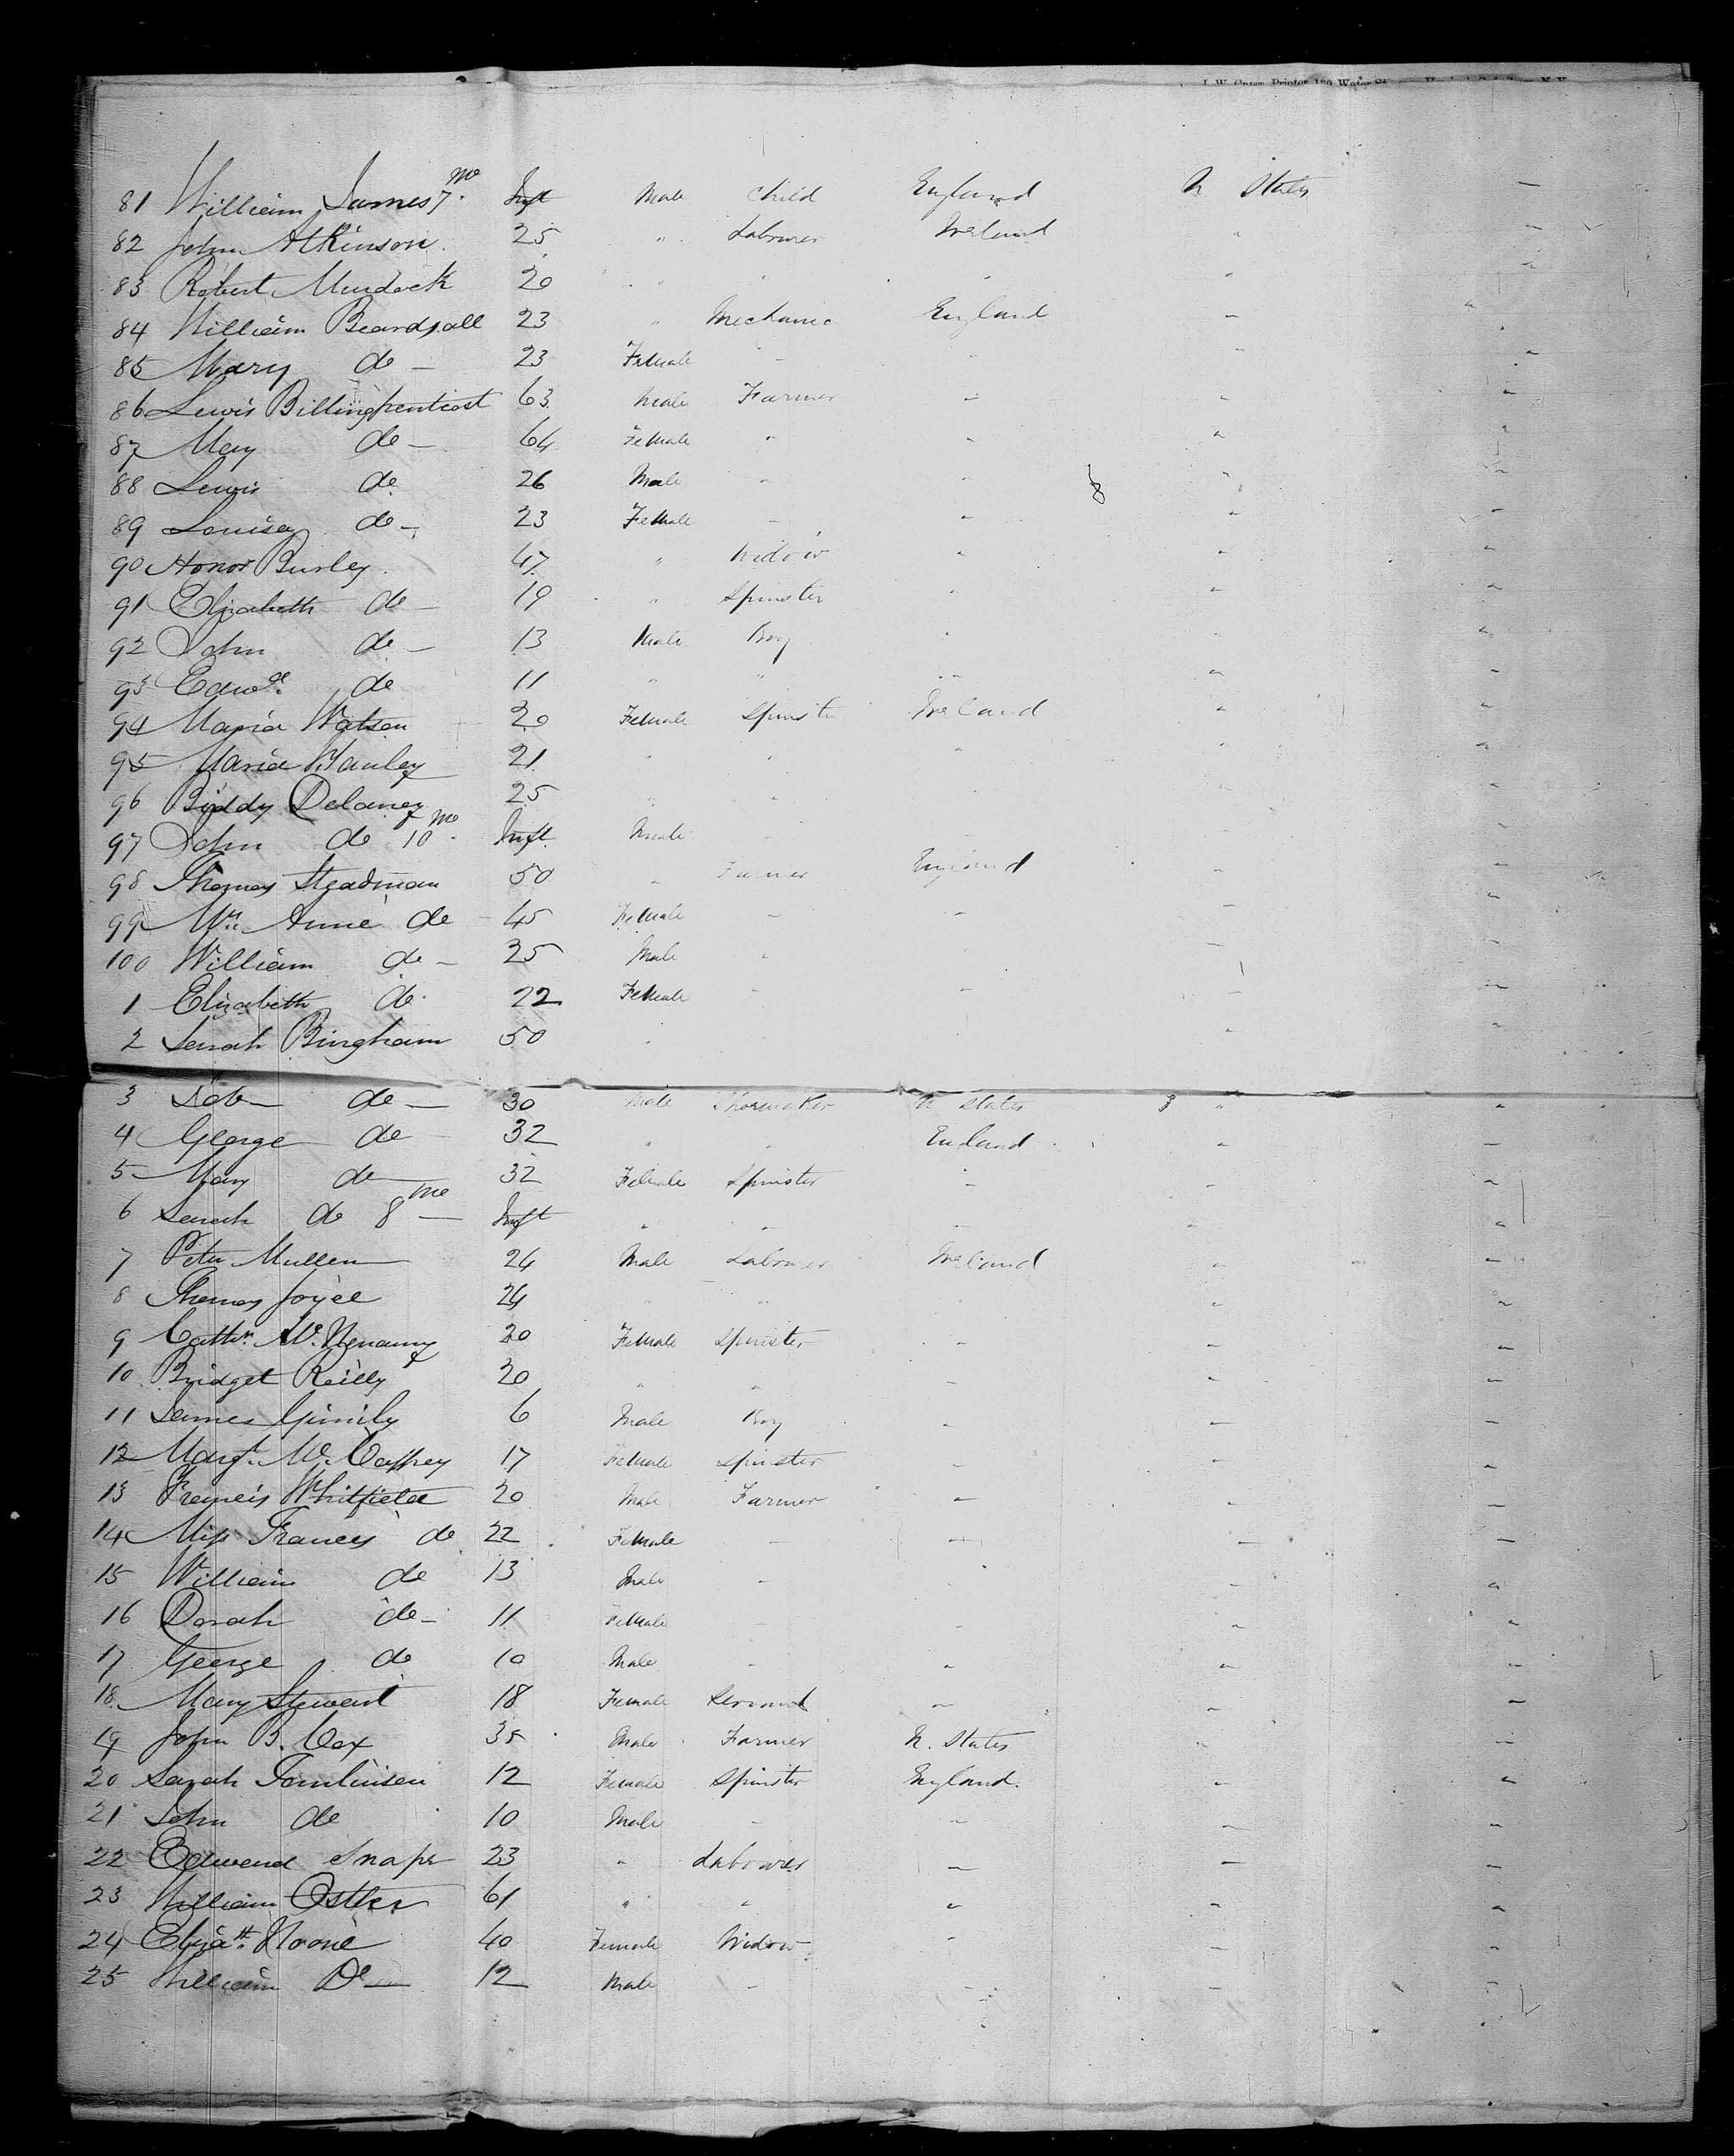 J. W. Oater, Printer, 130 Water St.
81 William James 7 mo Inft Male Child England U States —
82 John Atkinson 25 " Labourer Ireland " "
83 Robert Murdock 20 " " " " "
84 William Beardsall 23 " Mechanic England " "
85 Mary do — 23 Female — " " "
86 Lewis Billingpenticost 63 Male Farmer " " "
87 Mary do — 64 Female " " " "
88 Lewis do 26 Male " " " "
89 Louisa do — 23 Female — " " "
90 Honor Burley 47 " Widow " " "
91 Elizabeth do — 19 " Spinster " " "
92 John do — 13 Male Boy " " "
93 Edwd. do 11 " " " " "
94 Maria Watson 20 Female Spinster Ireland " "
95 Maria Hanley 21 " " " " "
96 Biddy Delaney 25 " "
97 John do 10 mo Inft Male
98 Thomas Steadman 50 " Farmer England " "
99 Mrs. Anne do 45 Female — " — "
100 William do — 25 Male " — "
1 Elizabeth do 22 Female " " — "
2 Sarah Bingham 50 " " "
3 do — 30 Male Shoemaker U States " "
4 George do 32 " " England " —
5 Mary do — 32 Female Spinster — " "
6 Sarah do 8 mo — Inft " — — " "
7 Peter Mullen 24 Male Labourer Ireland " "
8 Thomas Joyce 24 " " " "
9 Cathn. Mc 20 Female Spinster " " "
10 Bridget Reilly 20 " " — " —
11 James 6 Male Boy " — —
12 Margt. McCaffrey 17 Female Spinster " " "
13 Francis Whitfield 20 Male Farmer — " "
14 Miss Frances do 22 Female — — — —
15 William do 13 Male " " "
16 Dorah do — 11 Female " " "
17 George do 10 Male " " " "
18 Mary Stewart 18 Female Servant " " "
19 John B. Cox 35 Male Farmer U. States " "
20 Sarah Tomlinson 12 Female Spinster England. — "
21 John do 10 Male — — — "
22 Edmend Snape 23 " Labourer — — —
23 William Ostler 61 " " " " "
24 Elizath. Noone 40 Female Widow " — "
25 William Do — 12 Male — — — "